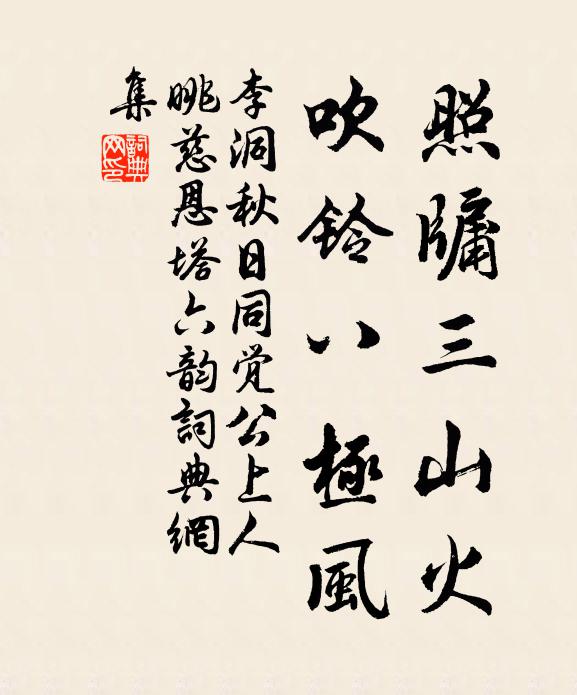 照牖三山火
吹鈴八極風
李洞秋日同覚公上人
眺慈恩塔六韵詞典網
集
詞典
网印